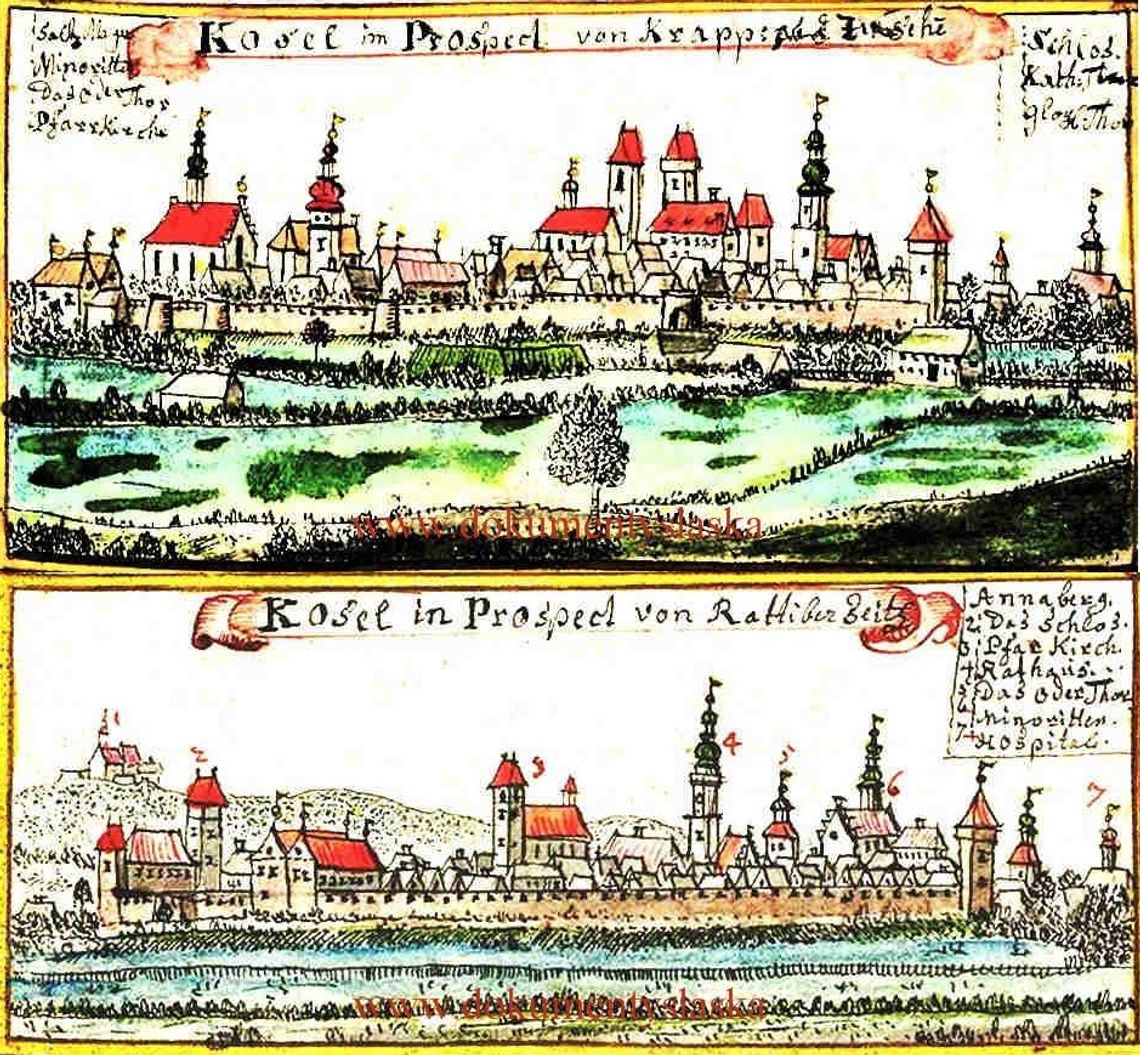 Kosel im Prospect von
Minoritten
Das Oder Thor
Pfarrkirche
Schlos.
Kath.
Glok Thor
www.dokumentyslaska
Kosel in Prospect von Rattiber Seite
Annaberg.
2. Das Schlos.
3 Pfar Kirch.
4 Rathaus.
5 Das Oder Thor
6 Minoritten.
7 Hospital.
1
2
3
4
5
6
7
www.dokumentyslaska